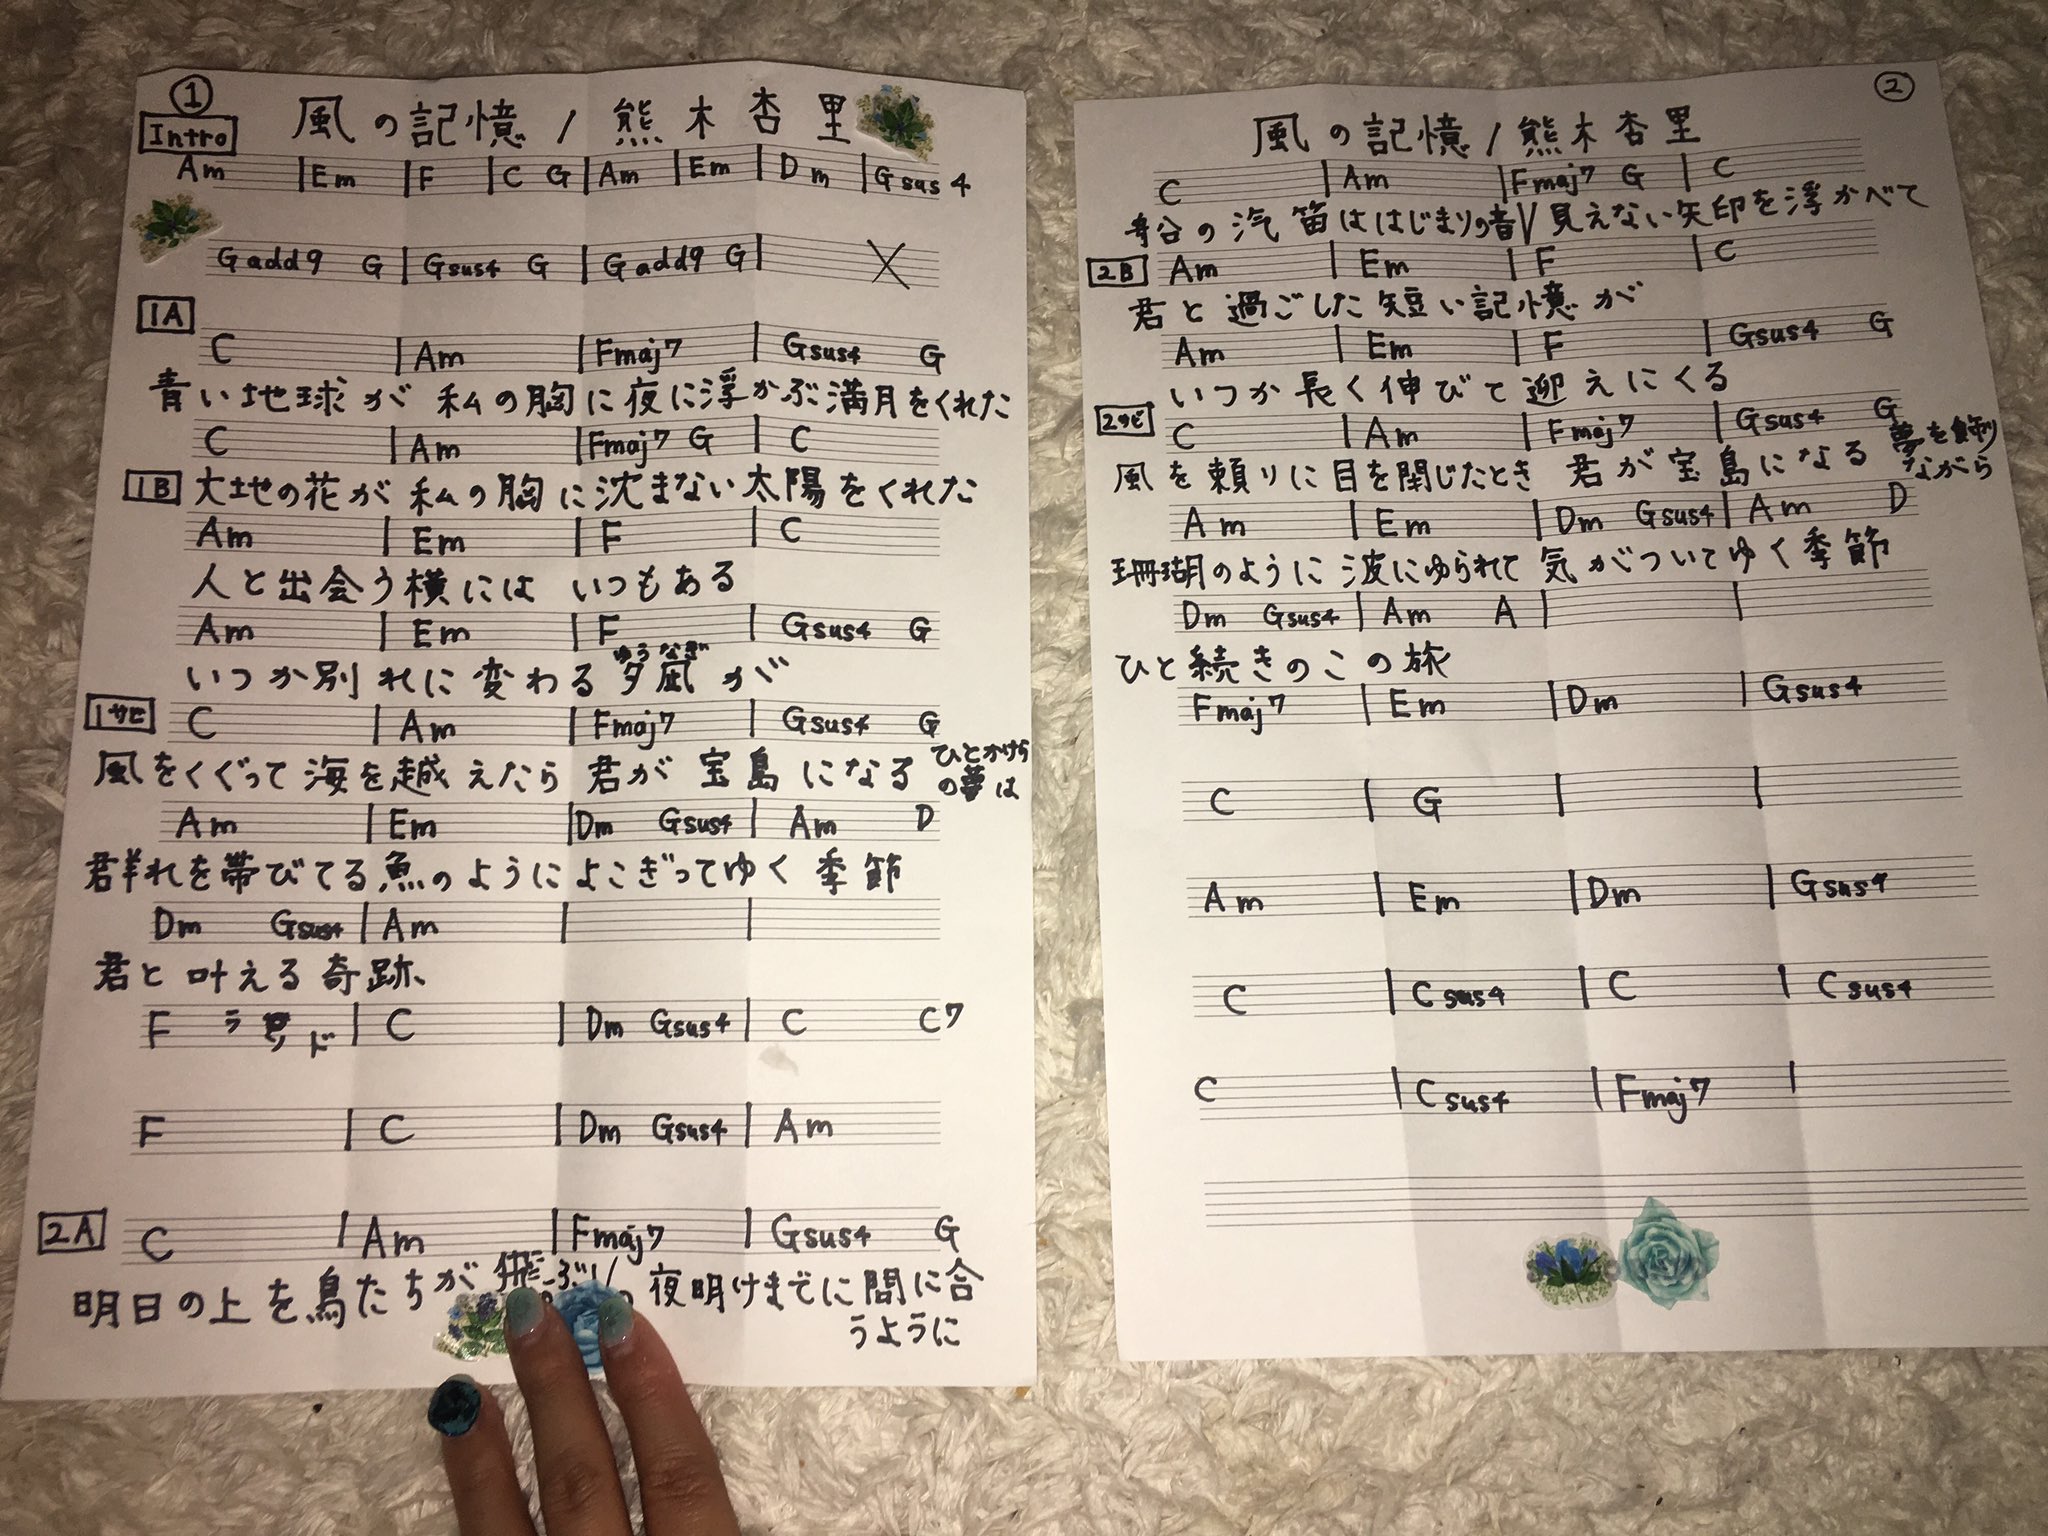 ①
Intro
風の記憶 / 熊木杏里
Am | Em | F | C G | Am | Em | Dm | Gsus4
Gadd9 G | Gsus4 G | Gadd9 G |
1A
C | Am | Fmaj7 | Gsus4 G
青い地球が 私の胸に夜に浮かぶ満月をくれた
C | Am | Fmaj7 G | C
1B
大地の花が 私の胸に沈まない太陽をくれた
Am | Em | F | C
人と出会う横には いつもある
Am | Em | F | Gsus4 G
ゆうなぎ
いつか別れに変わる夕凪が
1サビ
C | Am | Fmaj7 | Gsus4 G
風をくぐって海を越えたら 君が宝島になる ひとかけら
の夢は
Am | Em | Dm Gsus4 | Am D
群れを帯びてる魚のようによこぎってゆく季節
Dm Gsus4 | Am | |
君と叶える奇跡、
F ラ ド | C | Dm Gsus4 | C C7
F | C | Dm Gsus4 | Am
2A
C | Am | Fmaj7 | Gsus4 G
明日の上を鳥たちが飛ぶ 夜明けまでに間に合
うように
②
風の記憶 / 熊木杏里
C | Am | Fmaj7 G | C
船の汽笛ははじまりの音V見えない矢印を浮かべて
2B
Am | Em | F | C
君と過ごした短い記憶が
Am | Em | F | Gsus4 G
いつか長く伸びて迎えにくる
2サビ
C | Am | Fmaj7 | Gsus4 G
風を頼りに目を閉じたとき 君が宝島になる 夢を飾り
ながら
Am | Em | Dm Gsus4 | Am D
珊瑚のように波にゆられて気がついてゆく季節
Dm Gsus4 | Am A | |
ひと続きのこの旅
Fmaj7 | Em | Dm | Gsus4
C | G | |
Am | Em | Dm | Gsus4
C | Csus4 | C | Csus4
C | Csus4 | Fmaj7 |